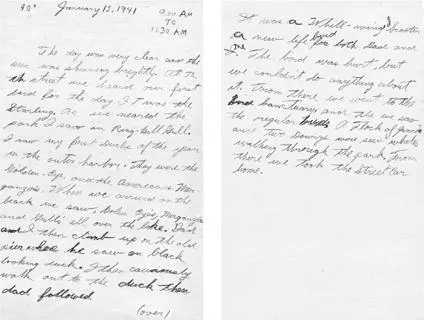 40°
January 15, 1941
9:00 AM
TO
11:30 AM
The day was very clear and the
sun was shining brightly. At 12
th street we heard our first
bird for the day. It was the
Starling. As we neared the
park I saw an Ring-bill Gull.
I saw my first ducks of the year
in the outer harbor. They were the
Golden-Eye, and the American Mer-
ganzers. When we arrived on the
beach we saw, Golden Eyes, Merganzers
and Gulls all over the lake. Dad
and I then climb up on the old
pier when he saw an black
looking duck. I then cautiously
walk out to the duck then
dad followed
(over)
It was a White-winged Scooter
a new life bird for both dad and
me. The bird was hurt, but
we couldn't do anything about
it. From there we went to the
bird sanctuary, and the we saw
the regular birds. A flock of
and two Downys were seen while
walking through the park. From
there we took the Street Car
home.